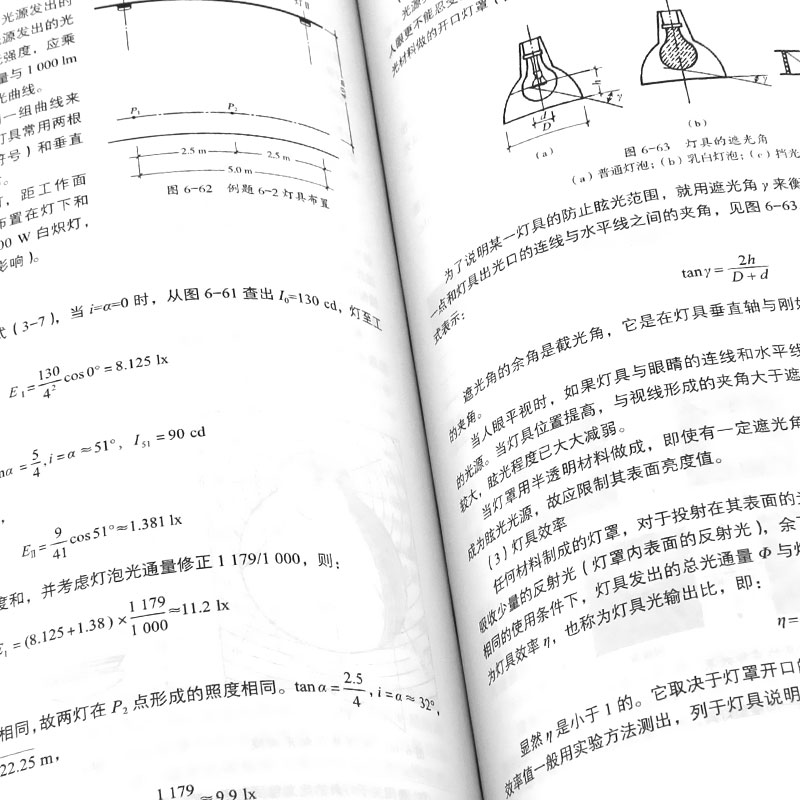 光源发出的
光源发出的光
光强度，应乘
量与 1 000 lm
光曲线。
一组曲线来
灯具常用两根
符号）和垂直
灯，距工作面
布置在灯下和
00 W 白炽灯，
影响）。
灯 II
P₁ P₂
2.5 m 2.5 m
5.0 m
图 6-62 例题 6-2 灯具布置
式（3-7），当 i=α=0 时，从图 6-61 查出 I₀=130 cd，灯至工
E_I = 130/4² cos0° = 8.125 lx
α = 5/4, i = α ≈ 51°, I₅₁ = 90 cd
E_II = 9/41 cos51° ≈ 1.381 lx
度和，并考虑灯泡光通量修正 1 179/1 000，则：
E₁ = (8.125+1.38) × 1 179/1 000 ≈ 11.2 lx
相同，故两灯在 P₂ 点形成的照度相同。tanα = 2.5/4, i = α ≈ 32°,
22.25 m，
1 179 ≈ 9.9 lx
人眼更不能忍受
光材料做的开口灯罩
h
γ
d
D
γ
(a)
(b)
图 6-63 灯具的遮光角
(a) 普通灯泡；(b) 乳白灯泡；(c) 挡光
为了说明某一灯具的防止眩光范围，就用遮光角 γ 来衡
一点和灯具出光口的连线与水平线之间的夹角，见图 6-63
式表示：
tanγ = 2h/(D + d)
遮光角的余角是截光角，它是在灯具垂直轴与刚好
的夹角。
当人眼平视时，如果灯具与眼睛的连线和水平线
的光源。当灯具位置提高，与视线形成的夹角大于遮
较大，眩光程度已大大减弱。
当灯罩用半透明材料做成，即使有一定遮光角
成为眩光光源，故应限制其表面亮度值。
(3) 灯具效率
任何材料制成的灯罩，对于投射在其表面的光
吸收少量的反射光（灯罩内表面的反射光），余下
相同的使用条件下，灯具发出的总光通量 Φ 与灯
为灯具效率 η，也称为灯具光输出比，即：
η =
显然 η 是小于 1 的。它取决于灯罩开口的
效率值一般用实验方法测出，列于灯具说明